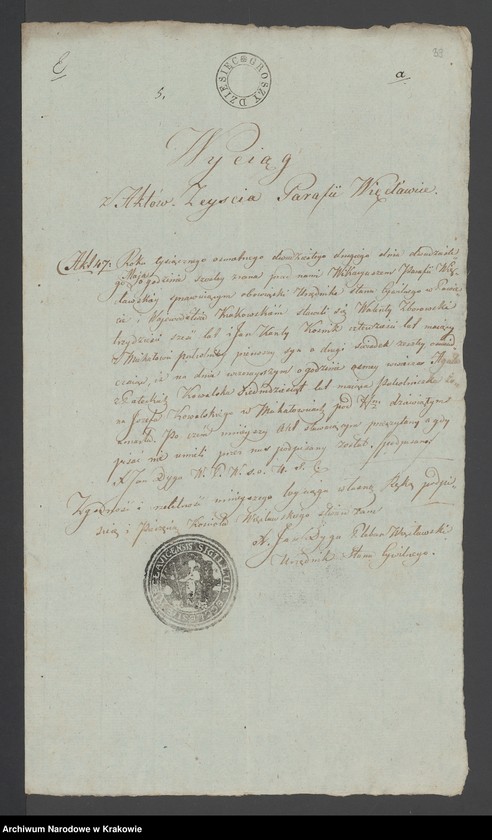 89
E
a
DZIESIĘĆ GROSZY
5,
Wyciąg
z Aktów Zeyscia Parafii Więcławice.
Akt 47. Roku tysiącznego osmsetnego dwudziestego drugiego dnia dwudzieste
go Maja o godzinie szostey zrana przed nami Wikaryuszem Parafii Wię
cławskiey sprawuiącym obowiązki Urzędnika Stanu Cywilnego w Powie
cie i Wojewodztwie Krakowskim stawili się Walenty Zborowski
trzydzieści sześć lat i Jan Kanty Kosnik czterdzieści lat maiący
z Michałowic pierwszy syn a drugi świadek zeszłey
czaiąc, iż na dniu wczorayszym o godzinie osmey wieczor Agata
z Kowalska Siedmdziesiąt lat maiąca
na Józefa Kowalskiego w pod Nrm dziewiątym
zmarła. Po czem ninieyszy Akt stawaiącym przeczytany a gdy
pisać nie umieli przez nas podpisany został. podpisano
X Jan Dyga W. P. W. s. o. U. S. C.
Zgodność i rzetelność ninieyszego wyciągu własną Ręką podpi-
sem i Pieczęcią Kościoła Węcławskiego stwierdzam
X. Jan Dyga Pleban Węcławski
Urzędnik Stanu Cywilnego.
SIGILLUM
Archiwum Narodowe w Krakowie